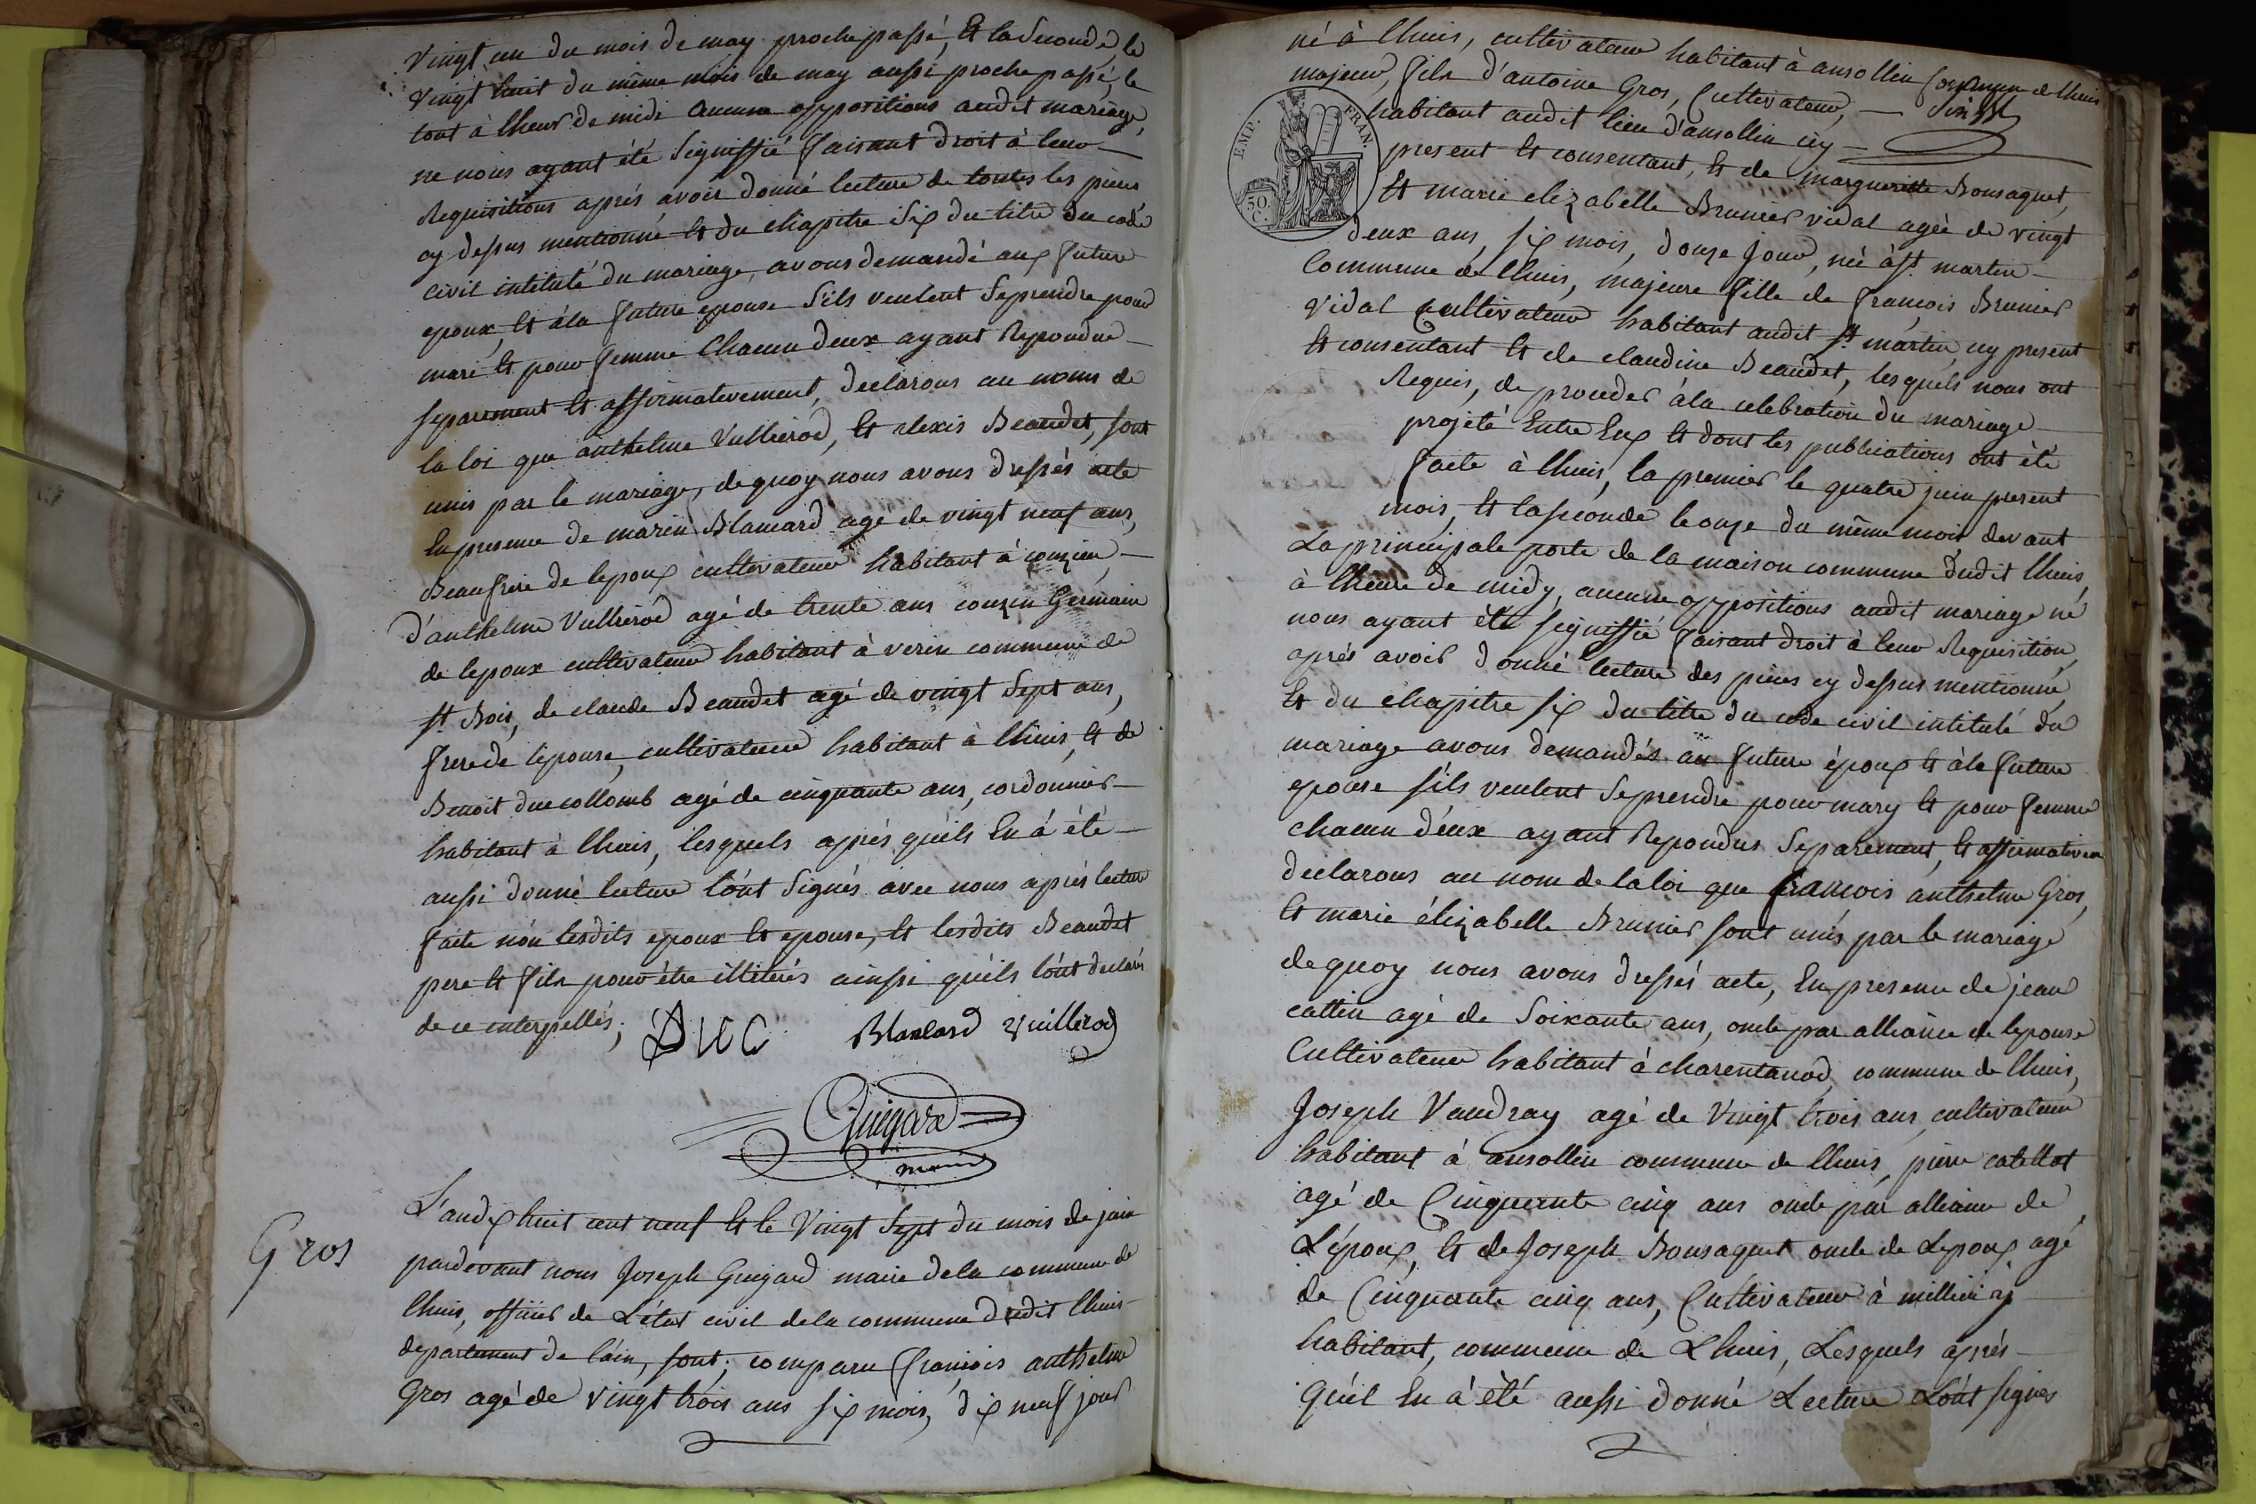 vingt un du mois de may proche passé, et la seconde le
vingt huit du même mois de may aussi proche passé, le
tout à lheur de midi aucune oppositions audit mariage,
ne nous ayant été signiffié faisant droit à leur
Requisitions aprés avoir donné lecture de toutes les pieces
cy dessus mentionné et du chapitre six du titre du code
civil intitulé du mariage, avons demandé aux future
epoux, et à la future epouse s'ils veulent se prendre pour
mari et pour femme chacun deux ayant Repondue
separement et affirmativement, declarons au noms de
la loi que anthelme Vullierod, et alexis Beaudet, sont
unis par le mariage, de quoy nous avons dressés acte
En presence de marin Blancard agé de vingt neuf ans,
Beaufrere de lepoux cultivateur habitant à conzieu,
d'anthelme Vullierod agé de trente ans couzin Germain
de lepoux cultivateur habitant à verin commune de
st Bois, de claude Beaudet agé de vingt sept ans,
frere de l'epouse, cultivateur habitant à lhuis, et de
Benoit duccollomb agé de cinquante ans, cordonnier
habitant à lhuis, lesquels aprés qu'ils En á été
aussi donné lecture l'ont signés avec nous aprés lecture
faite nón lesdits epoux et epouse, et lesdits Beaudet
pere et fils pour étre illiterés ainssi qu'ils l'ont declarés
de ce interpellés;
DUC Blanlard Vuillerod
Guigard
maire
Gros
L'an dix huit cent neuf et le Vingt sept du mois de juin
pardevant nous Joseph Guigard maire de la commune de
lhuis, officier de L'état civil de la commune dudit lhuis
departement de l'ain, sont, comparu françois anthelme
Gros agé de vingt trois ans six mois, dix neuf jour
né à lhuis, cultivateur habitant à ansollin commune de lhuis
majeur, fils d'antoine Gros, Cultivateur,
habitant audit lieu d'ansollin icy
present et consentant, et de margueritte Bonsaquet,
EMP. FRAN.
50. C.
Et marie elizabelle Brunier vidal agèe de vingt
deux ans, six mois, douze Jour, né à st martin
Commune de lhuis, majeure fille de françois Brunier
Vidal cultivateur habitant audit st martin icy present
et consentant et de claudine Beaudet, lesquels nous ont
Requis, de proceder à la celebration du mariage
projeté Entre Eux et dont les publications ont été
faite à lhuis, la premier le quatre juin present
mois, et la seconde le onze du même mois devant
La principale porte de la maison commune dudit lhuis,
à lheure de midy, aucune oppositions audit mariage né
nous ayant été signiffié faisant droit à leur Requisition,
aprés avoir donné lecture des pieces cy dessus mentionné,
et du chapitre six du titre du code civil intitulé du
mariage avons demandés au future époux et à la future
epouse s'ils veulent se prendre pour mary et pour femme
chacun d'eux ayant Repondus separement, et affirmativem
declarons au nom de la loi que françois anthelme Gros,
et marie élizabelle Brunier sont unis par le mariage
de quoy nous avons dressés acte, En presence de jean
cattin agé de soixante ans, oncle par alliance de lepouse
Cultivateur habitant à charentanod, commune de lhuis,
Joseph Vaudray agé de Vingt trois ans, cultivateur
habitant à ansollin commune de lhuis, pierre catellot
agé de Cinquante cinq ans oncle par alliance de
L'époux, et de Joseph Bonsaquet oncle de Lepoux agé
de Cinquante cinq ans, Cultivateur à millieu y
habitant, commune de Lhuis, Lesquels aprés
qu'il En à été aussi donné Lecture L'ont signés